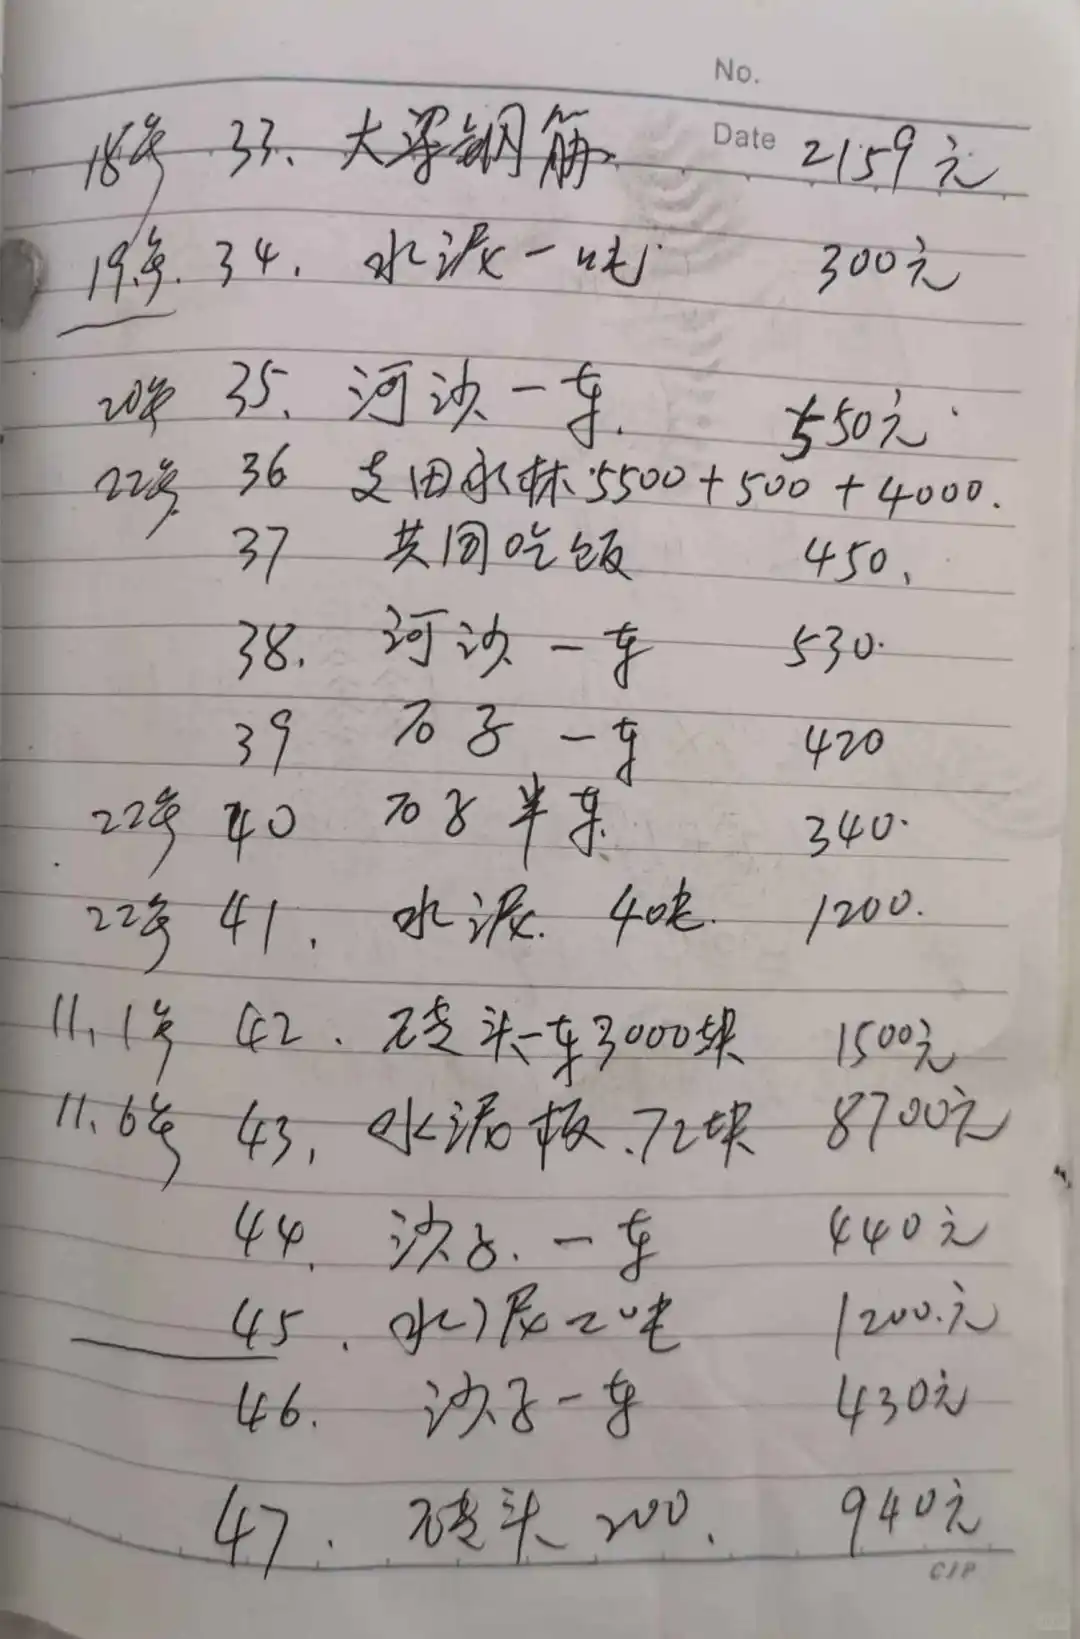 No.
Date
18号 33、大梁钢筋 2159元
19号. 34. 水泥一吨 300元
20号 35、河沙一车. 550元
22号 36 支田永林.5500+500+4000.
37 共同吃饭 450.
38. 河沙一车 530.
39 石子一车 420
22号 40 石子半车 340.
22号 41. 水泥. 4吨. 1200.
11.1号 42. 砖头一车3000块 1500元
11.6号 43. 水泥板.72块 8700元
44. 沙子.一车 440元
45. 水泥二吨 1200.元
46. 沙子一车 430元
47. 砖头 200. 940元
CJP